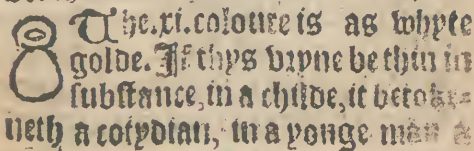 The.xi.coloure is as whyte
golde. If thys vryne be thin in
substance, in a chylde, it betoke-
neth a cotydian, in a yonge man a